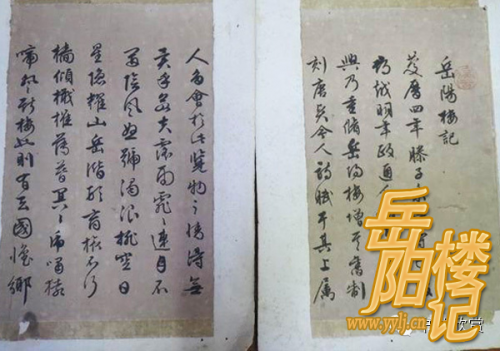 岳陽樓記
慶曆四年滕子
明年政通人
興乃重修岳陽樓增其舊制
刻唐賢今人詩賦于其上屬
人多會於此覽物之情得無
異乎若夫霪雨霏〻連月不
開陰風怒號濁浪排空日
星隱耀山岳潛形商旅不行
檣傾楫摧薄暮冥〻虎嘯猿
啼登斯樓也則有去國懷鄉
岳阳楼记
www.yylj.cn